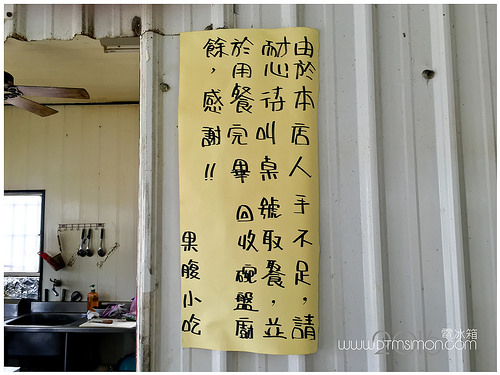 由於本店人手不足，請
耐心待叫桌號取餐，並
於用餐完畢回收碗盤廚
餘，感謝!!
果腹小吃
電冰箱
www.ptmsimon.com